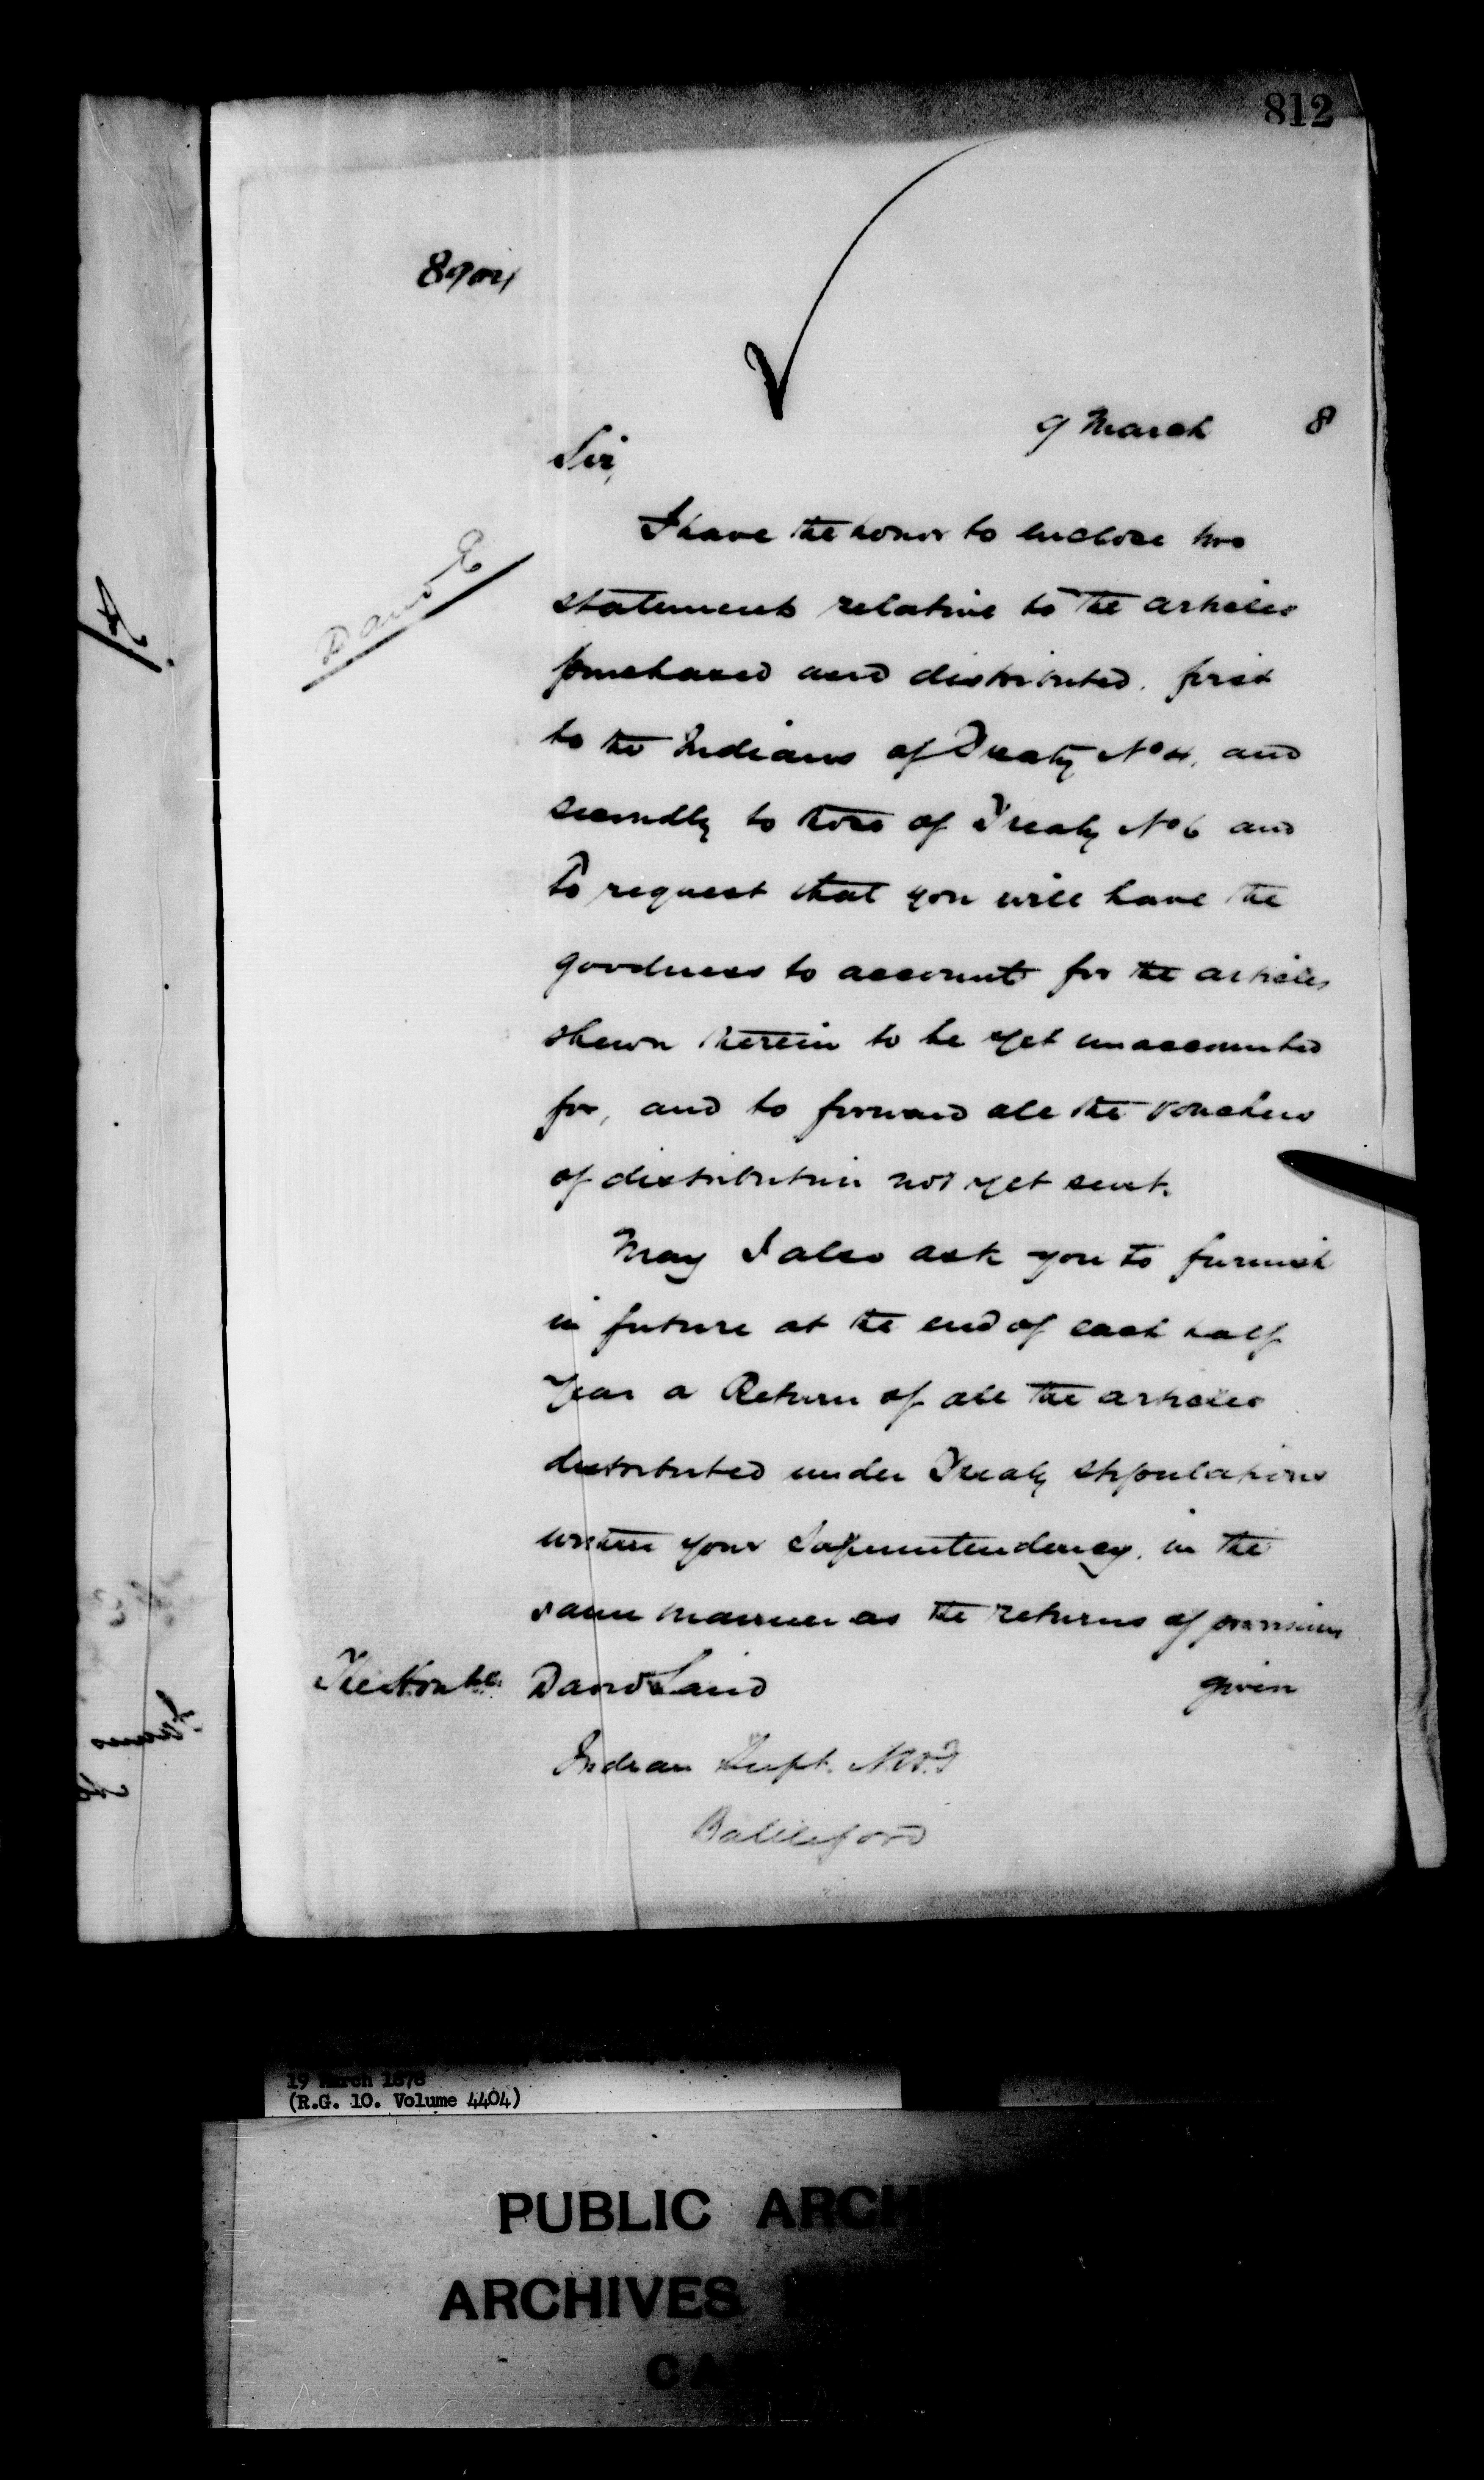 812
9 March 8
Sir,
I have the honor to enclose two
statements relative to the articles
purchased and distributed, first
to the Indians of Treaty No 4, and
secondly to those of Treaty No 6 and
to request that you will have the
goodness to account for the articles
shewn therein to be yet unaccounted
for, and to forward all the vouchers
of distribution not yet sent.
May I also ask you to furnish
in future at the end of each half
year a Return of all the articles
distributed under Treaty stipulations
within your Superintendency, in the
same manner as the returns of provisions
given
The Honble David Laird
Indian Supt. N.W.T
Battleford
19 March 1878
(R.G. 10. Volume 4404)
PUBLIC ARCH
ARCHIVES
CA